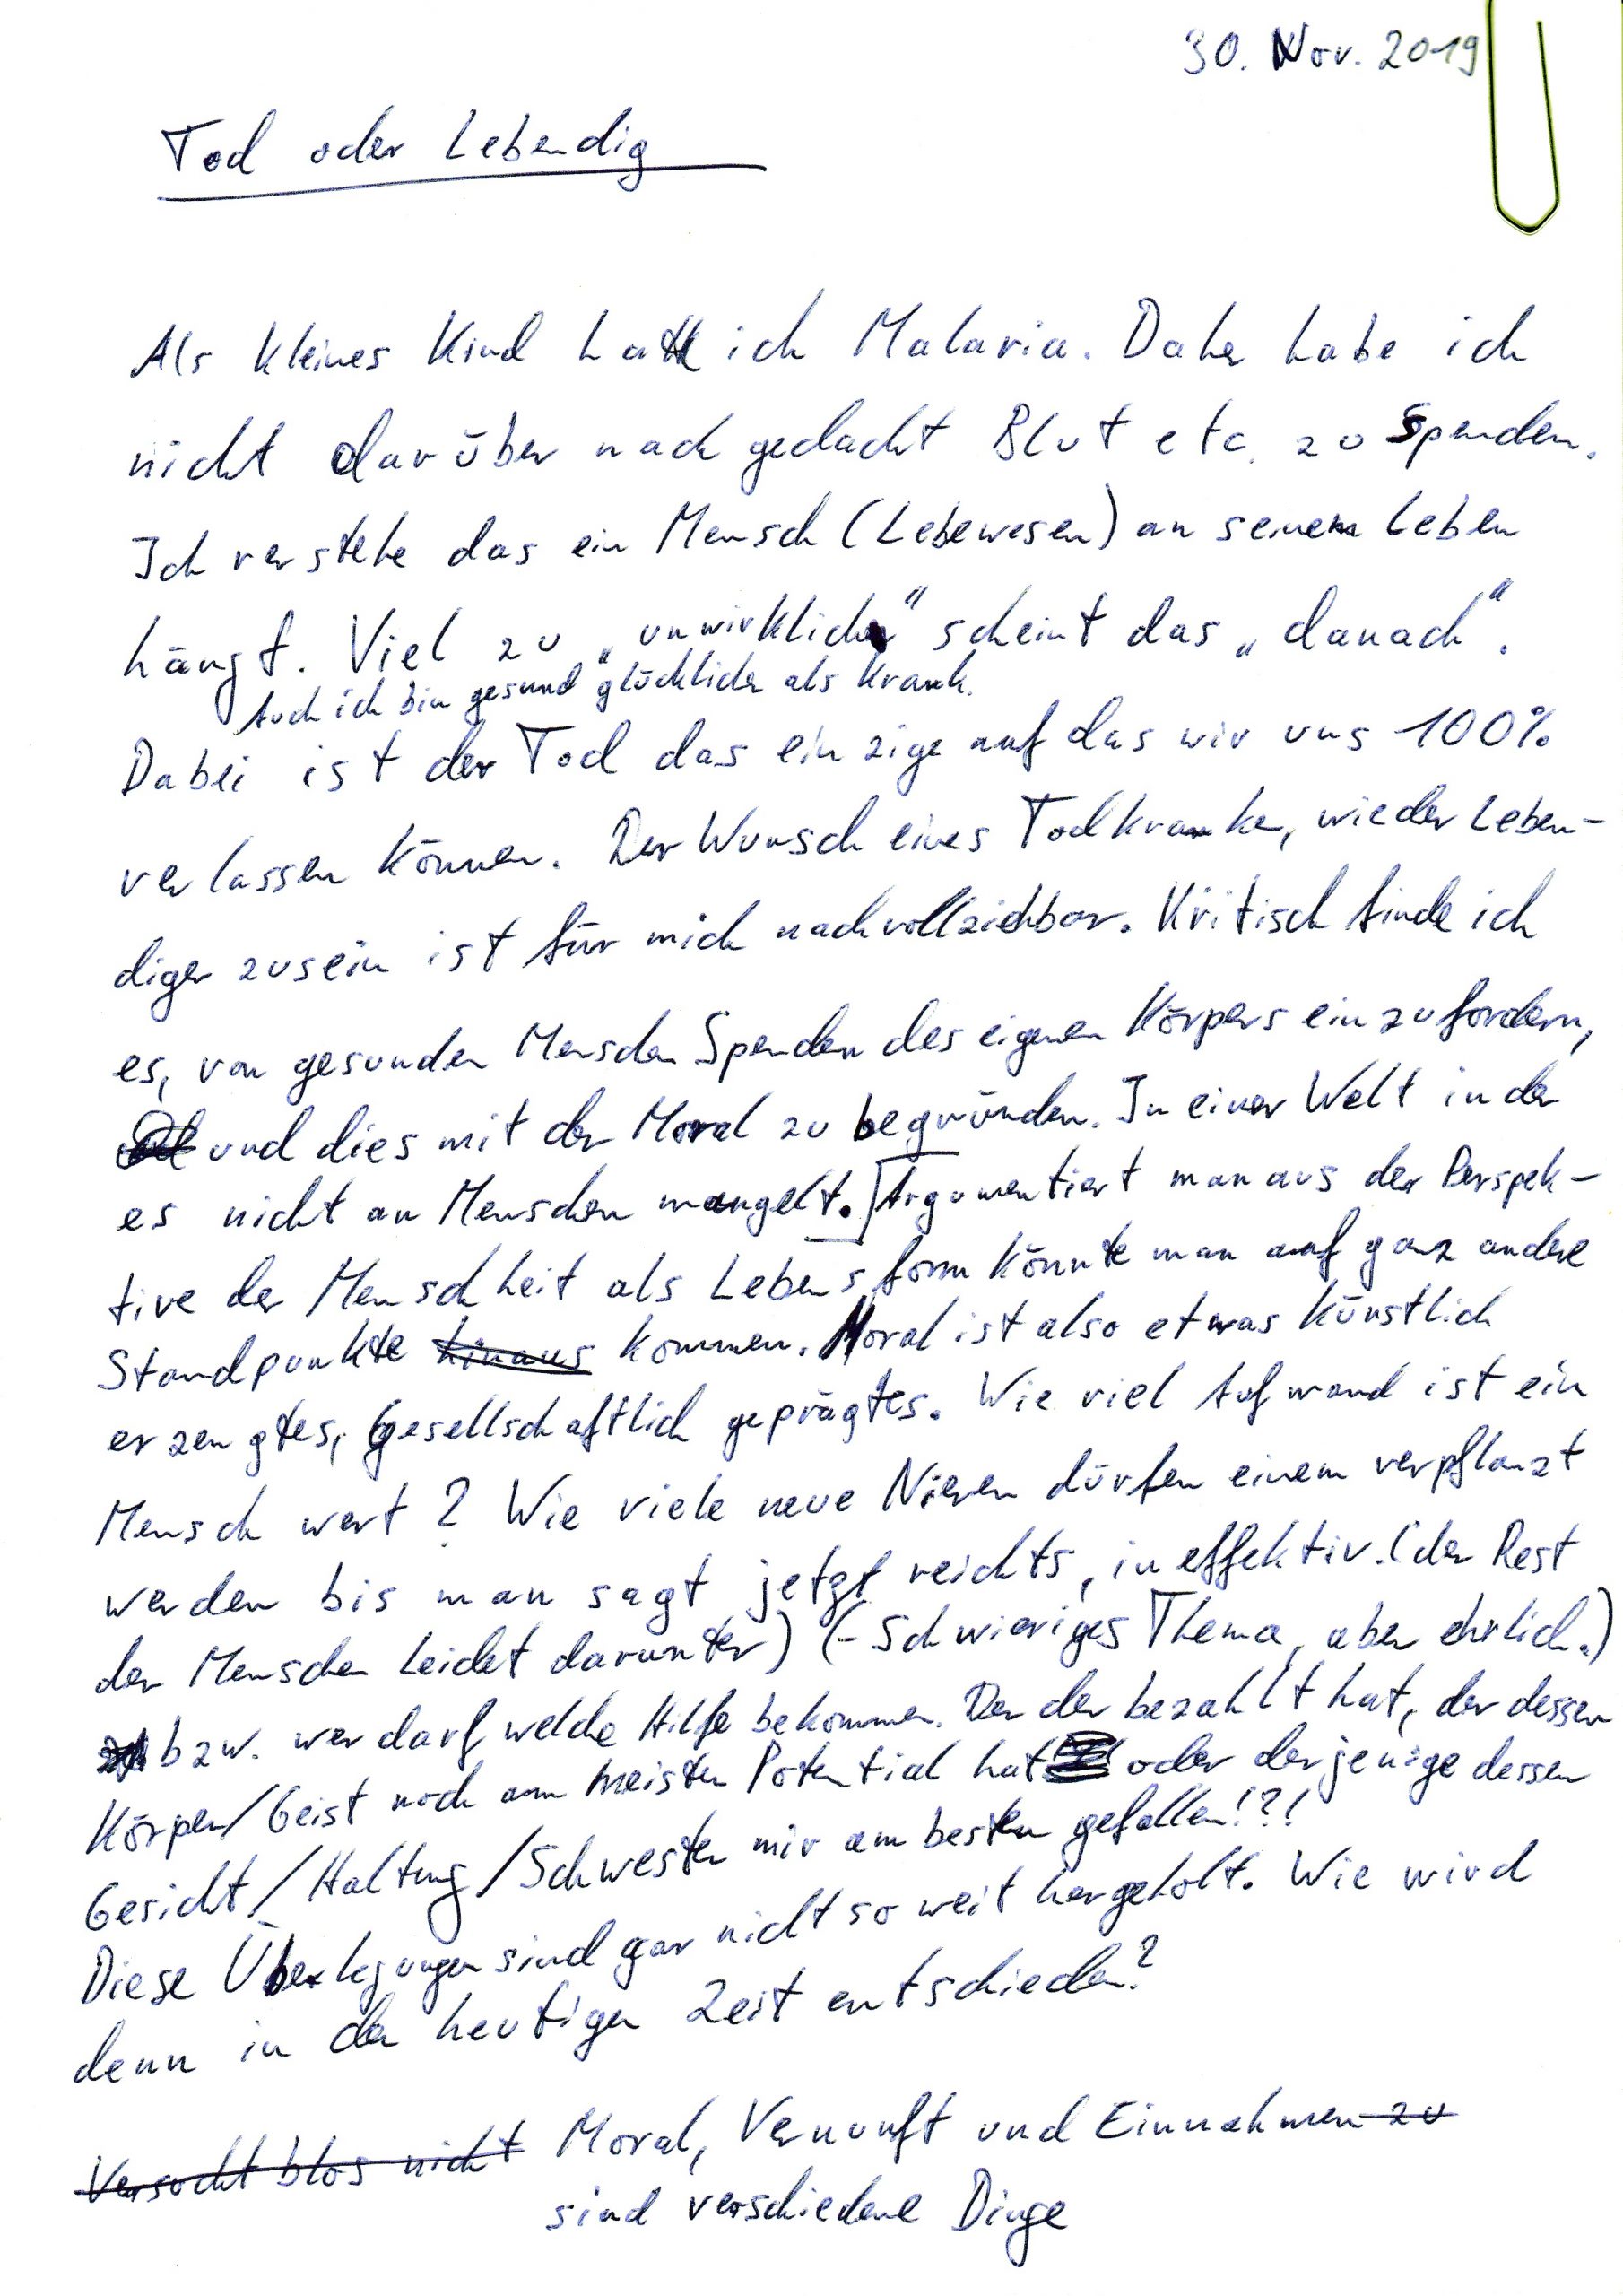 30. Nov. 2019
Tod oder Lebendig
Als kleines Kind hatte ich Malaria. Daher habe ich
nicht darüber nach gedacht Blut etc. zu Spenden.
Ich verstehe das ein Mensch (Lebewesen) an seinem Leben
hängt. Viel zu „unwirklich" scheint das „danach".
Auch ich bin gesund glücklicher als krank.
Dabei ist der Tod das einzige auf das wir uns 100%
verlassen können. Der Wunsch eines Todkranken, wieder Leben-
diger zusein ist für mich nachvollziehbar. Kritisch finde ich
es, von gesunden Menschen Spenden des eigenen Körpers einzufordern,
und dies mit der Moral zu begründen. In einer Welt in der
es nicht an Menschen mangelt. Argumentiert man aus der Perspek-
tive der Menschheit als Lebensform könnte man auf ganz andere
Standpunkte hinaus kommen. Moral ist also etwas künstlich
erzeugtes, Gesellschaftlich geprägtes. Wie viel Aufwand ist ein
Mensch wert? Wie viele neue Nieren dürfen einem verpflanzt
werden bis man sagt jetzt reichts, ineffektiv. (der Rest
der Menschen leidet darunter) (- Schwieriges Thema, aber ehrlich.)
bzw. wer darf welche Hilfe bekommen. Der der bezahlt hat, der dessen
Körper/Geist noch am meisten Potential hat oder derjenige dessen
Gesicht/Haltung/Schwester mir am besten gefallen!?!
Diese Überlegungen sind gar nicht so weit hergeholt. Wie wird
denn in der heutigen Zeit entschieden?
Versucht blos nicht Moral, Vernunft und Einnahmen zu
sind verschiedene Dinge